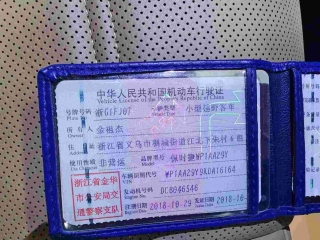 中华人民共和国机动车行驶证
Vehicle License of the People's Republic of China
号牌号码 浙G1FJ07 车辆类型 小型越野客车
所有人 金祖杰
住址 浙江省义乌市稠城街道江北下朱村
使用性质 非营运 品牌型号 保时捷WP1AA29Y
浙江省金华市公安局交通警察支队
车辆识别代号 WP1AA29Y9ADA
发动机号码 DC6046546
注册日期 2018-10-29 发证日期 2018-